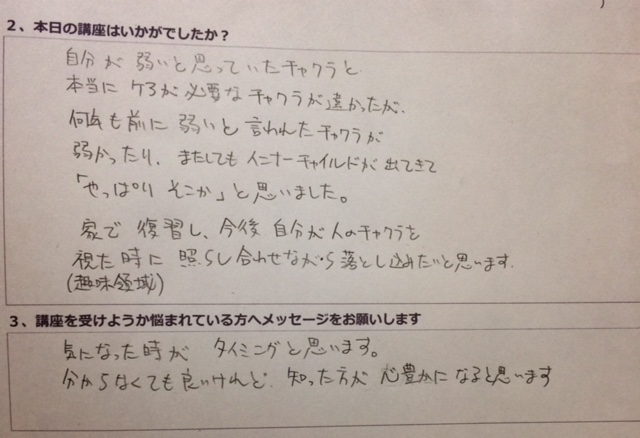 2、本日の講座はいかがでしたか？
自分が弱いと思っていたチャクラと
本当にケアが必要なチャクラが違かったが、
何年も前に弱いと言われたチャクラが
弱かったり、またしてもインナーチャイルドが出てきて
「やっぱりそこか」と思いました。
家で復習し、今後自分が人のチャクラを
視た時に照らし合わせながら落とし込めたいと思います.
(趣味領域)
3、講座を受けようか悩まれている方へメッセージをお願いします
気になった時がタイミングと思います。
分からなくても良いけれど、知った方が心豊かになると思います